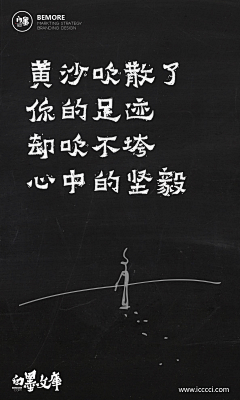 BEMORE
MARKTING STRATEGY
BRANDING DESIGN
黄沙吹散了
你的足迹
却吹不垮
心中的坚毅
白墨文库
www.icccci.com